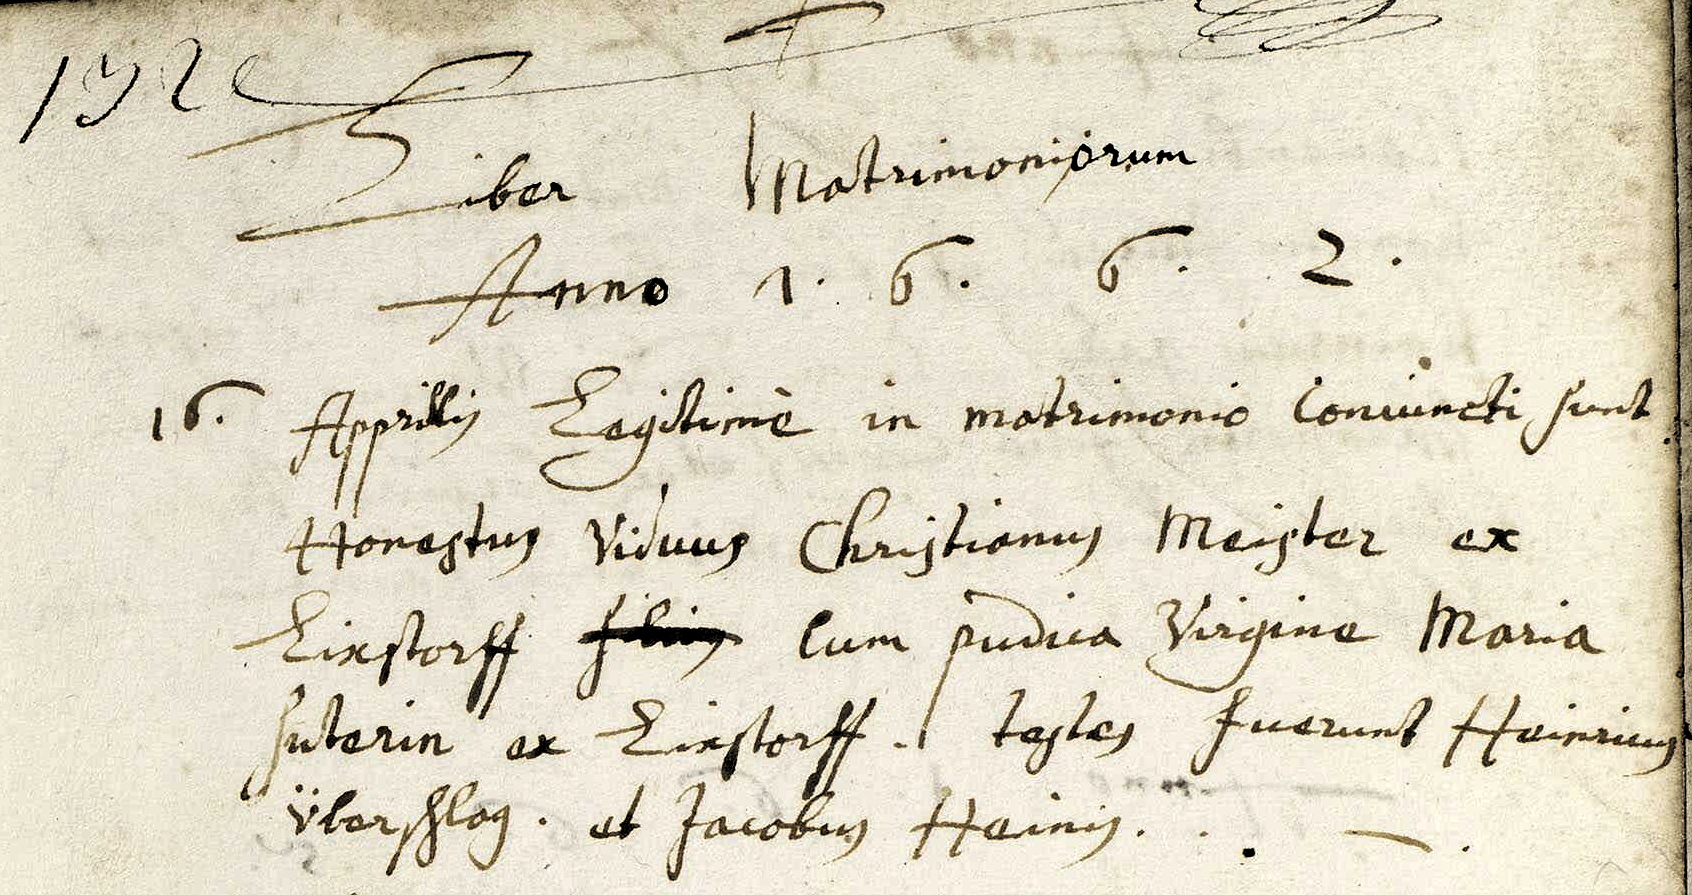 Liber Matrimoniorum
Anno 1. 6. 6. 2.
16. Apprillis Legitimè in matrimonio coniuncti sunt
Honestus Viduus Christianus Meister ex
Lixstorff filius cum pudica Virgine Maria
suterin ex Lixstorff. testes fuerunt Heinricus
Überschlag. et Jacobus Heinis.